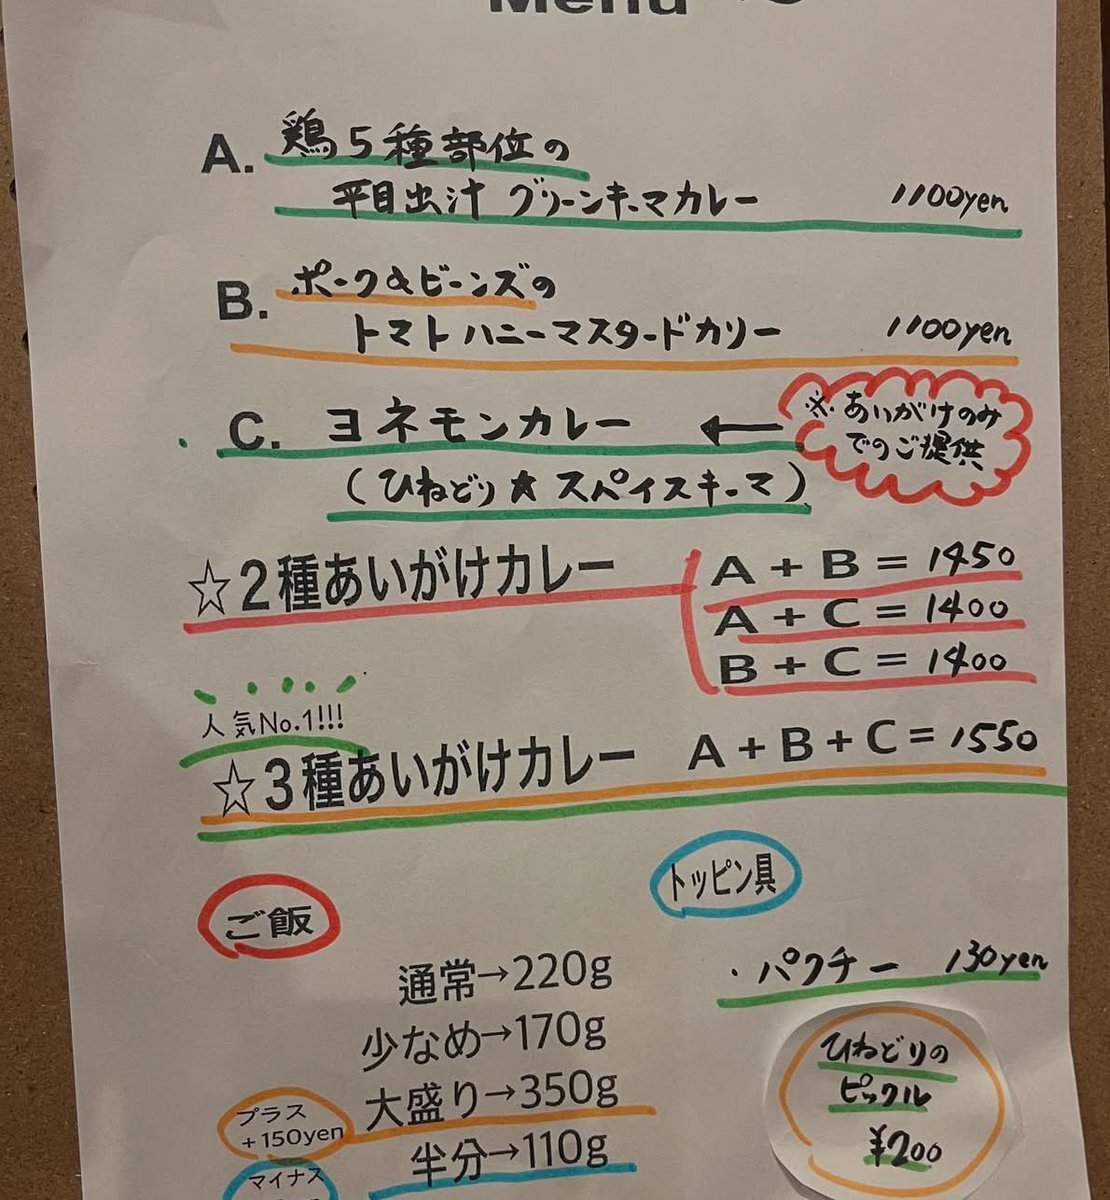 Menu
A. 鶏5種部位の
平目出汁 グリーンキーマカレー 1100yen
B. ポーク&ビーンズの
トマトハニーマスタードカリー 1100yen
C. ヨネモンカレー ←
※あいがけのみ
でのご提供
(ひねどり★スパイスキーマ)
☆2種あいがけカレー
A+B=1450
A+C=1400
B+C=1400
人気No.1!!!
☆3種あいがけカレー A+B+C=1550
トッピン具
ご飯
・パクチー 130yen
通常→220g
少なめ→170g
大盛り→350g
プラス
+150yen
半分→110g
マイナス
ひねどりの
ピックル
¥200